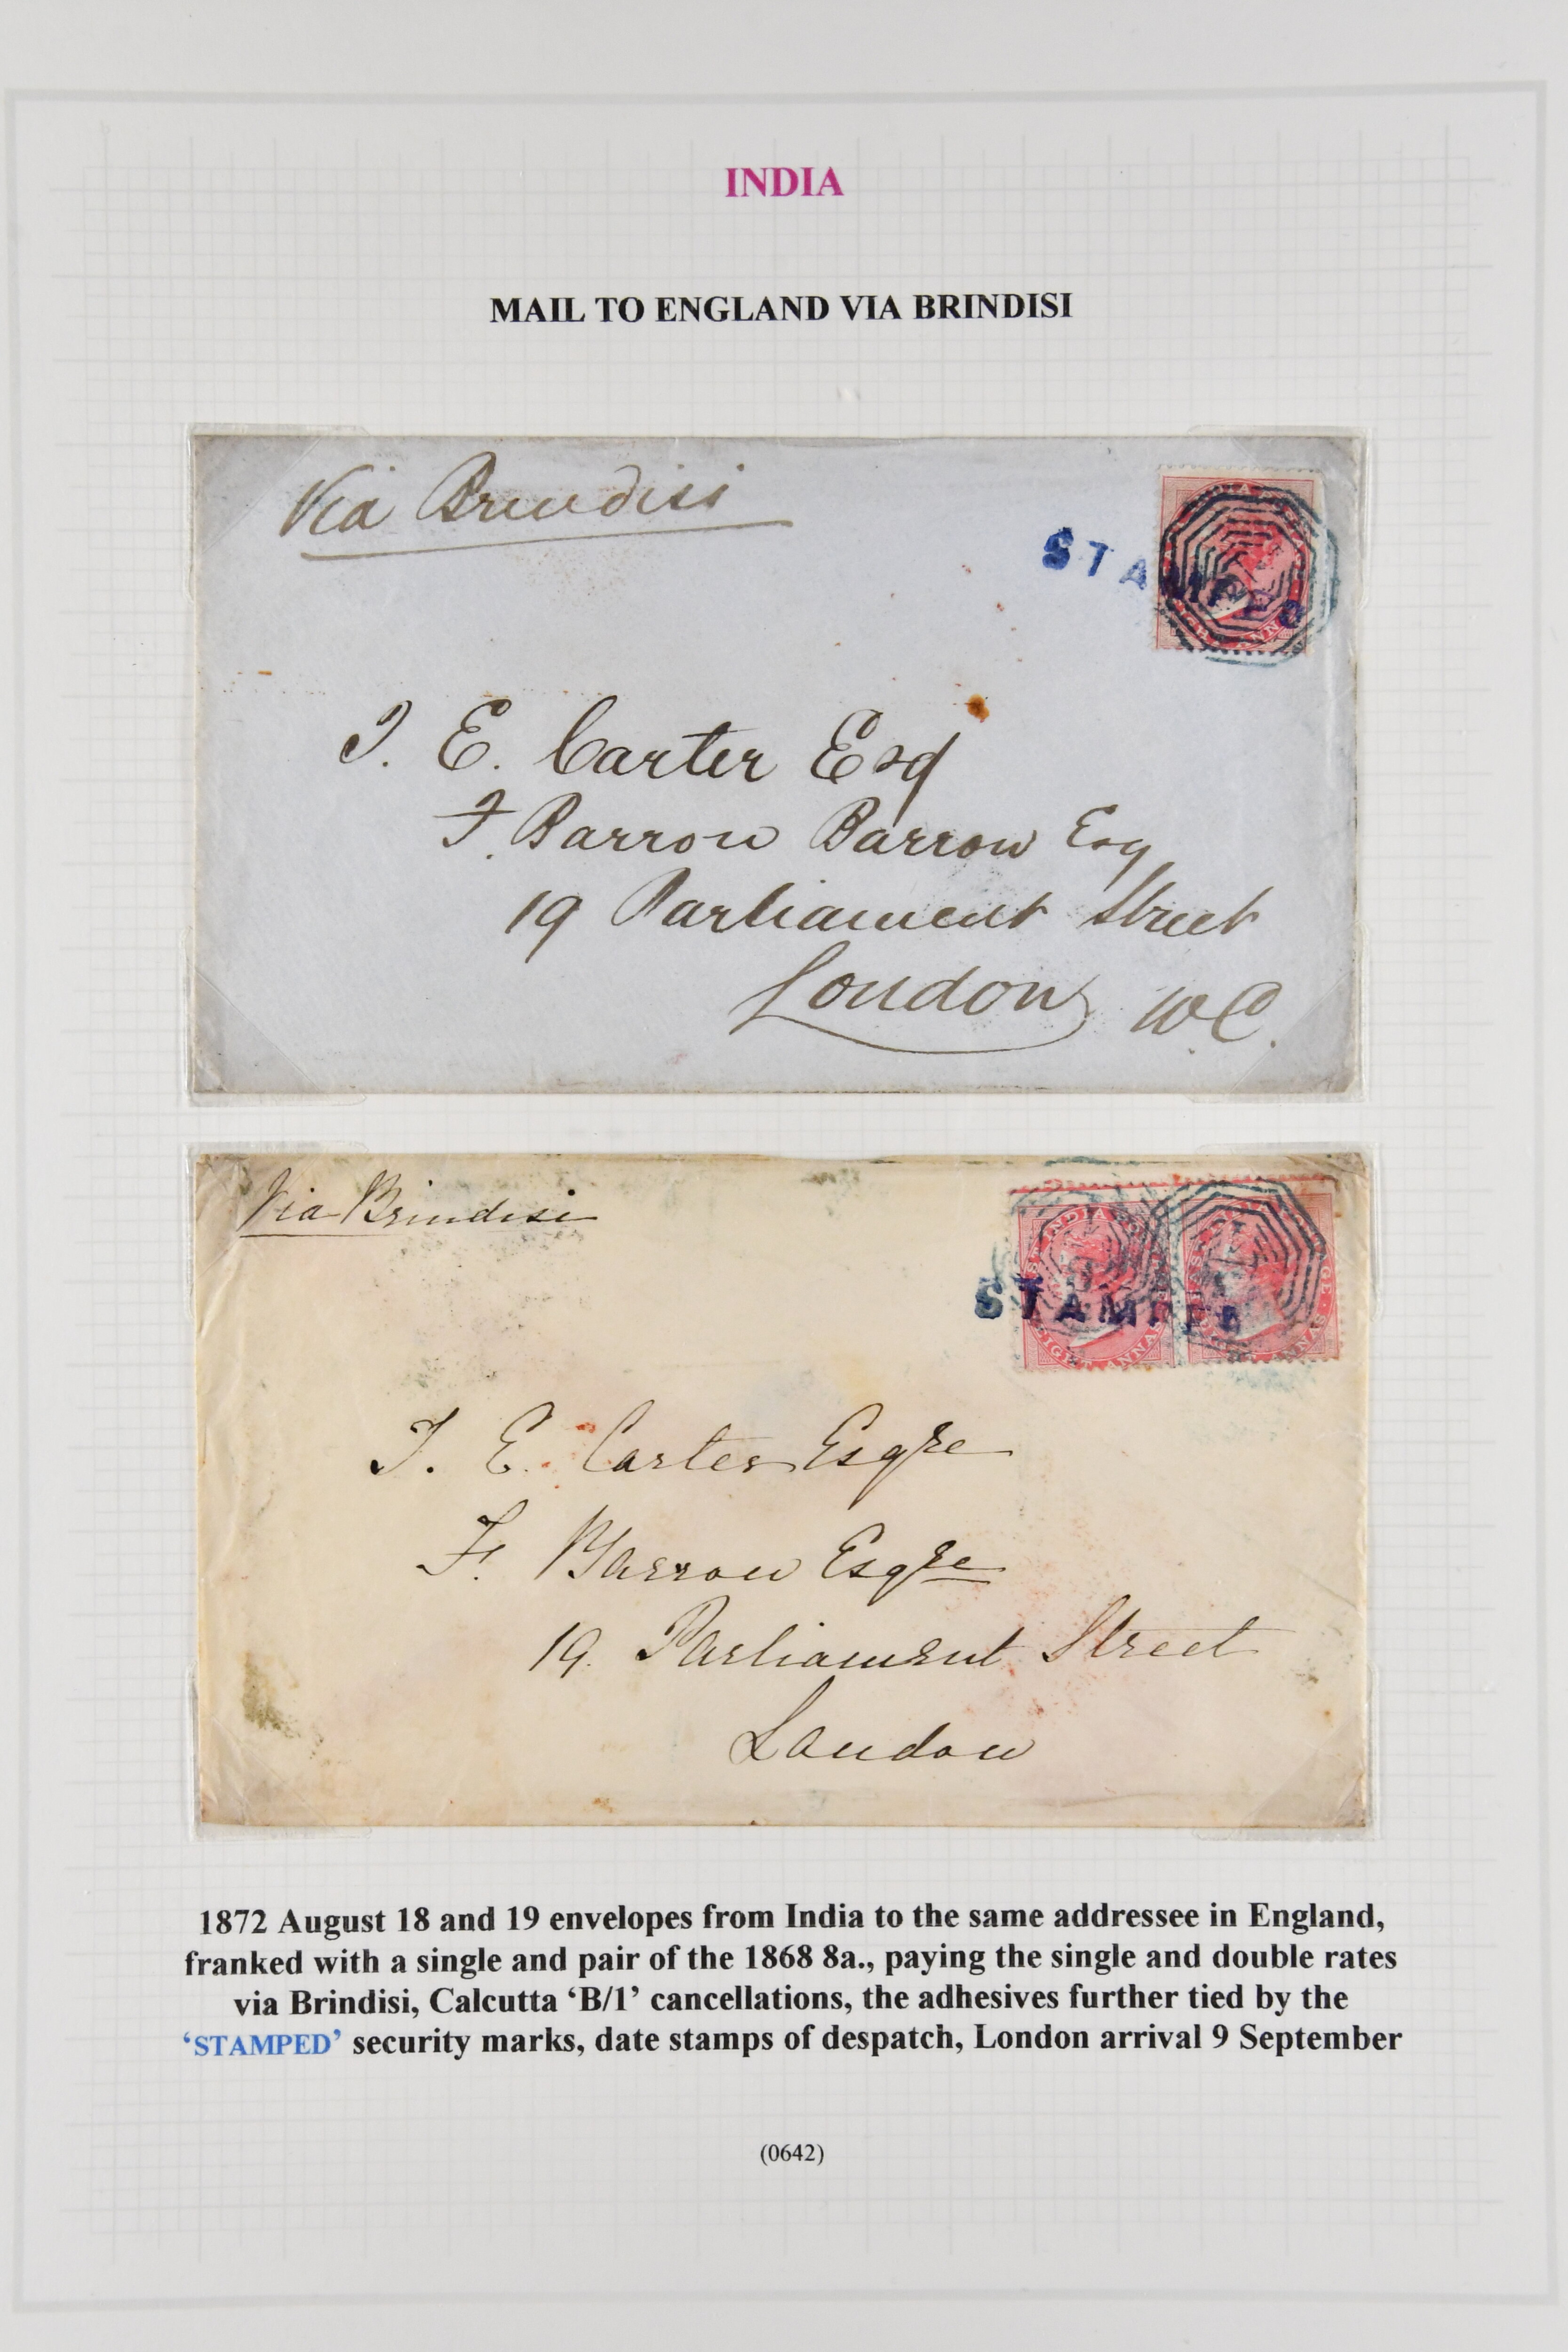 INDIA
MAIL TO ENGLAND VIA BRINDISI
Via Brindisi
STAMPED
T. E. Carter Esq
F. Barrow Barrow Esq
19 Parliament Street
London W.C.
Via Brindisi
STAMPED
EIGHT ANNAS
T. E. Carter Esqre
F. Barrow Esqre
19. Parliament Street
London
1872 August 18 and 19 envelopes from India to the same addressee in England,
franked with a single and pair of the 1868 8a., paying the single and double rates
via Brindisi, Calcutta ‘B/1’ cancellations, the adhesives further tied by the
‘STAMPED’ security marks, date stamps of despatch, London arrival 9 September
(0642)